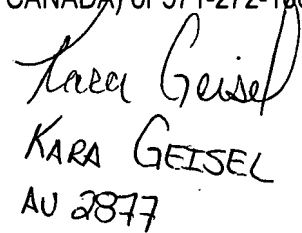 CANADA) or 571-272-100
Kara Geisel
KARA GEISEL
AU 2877